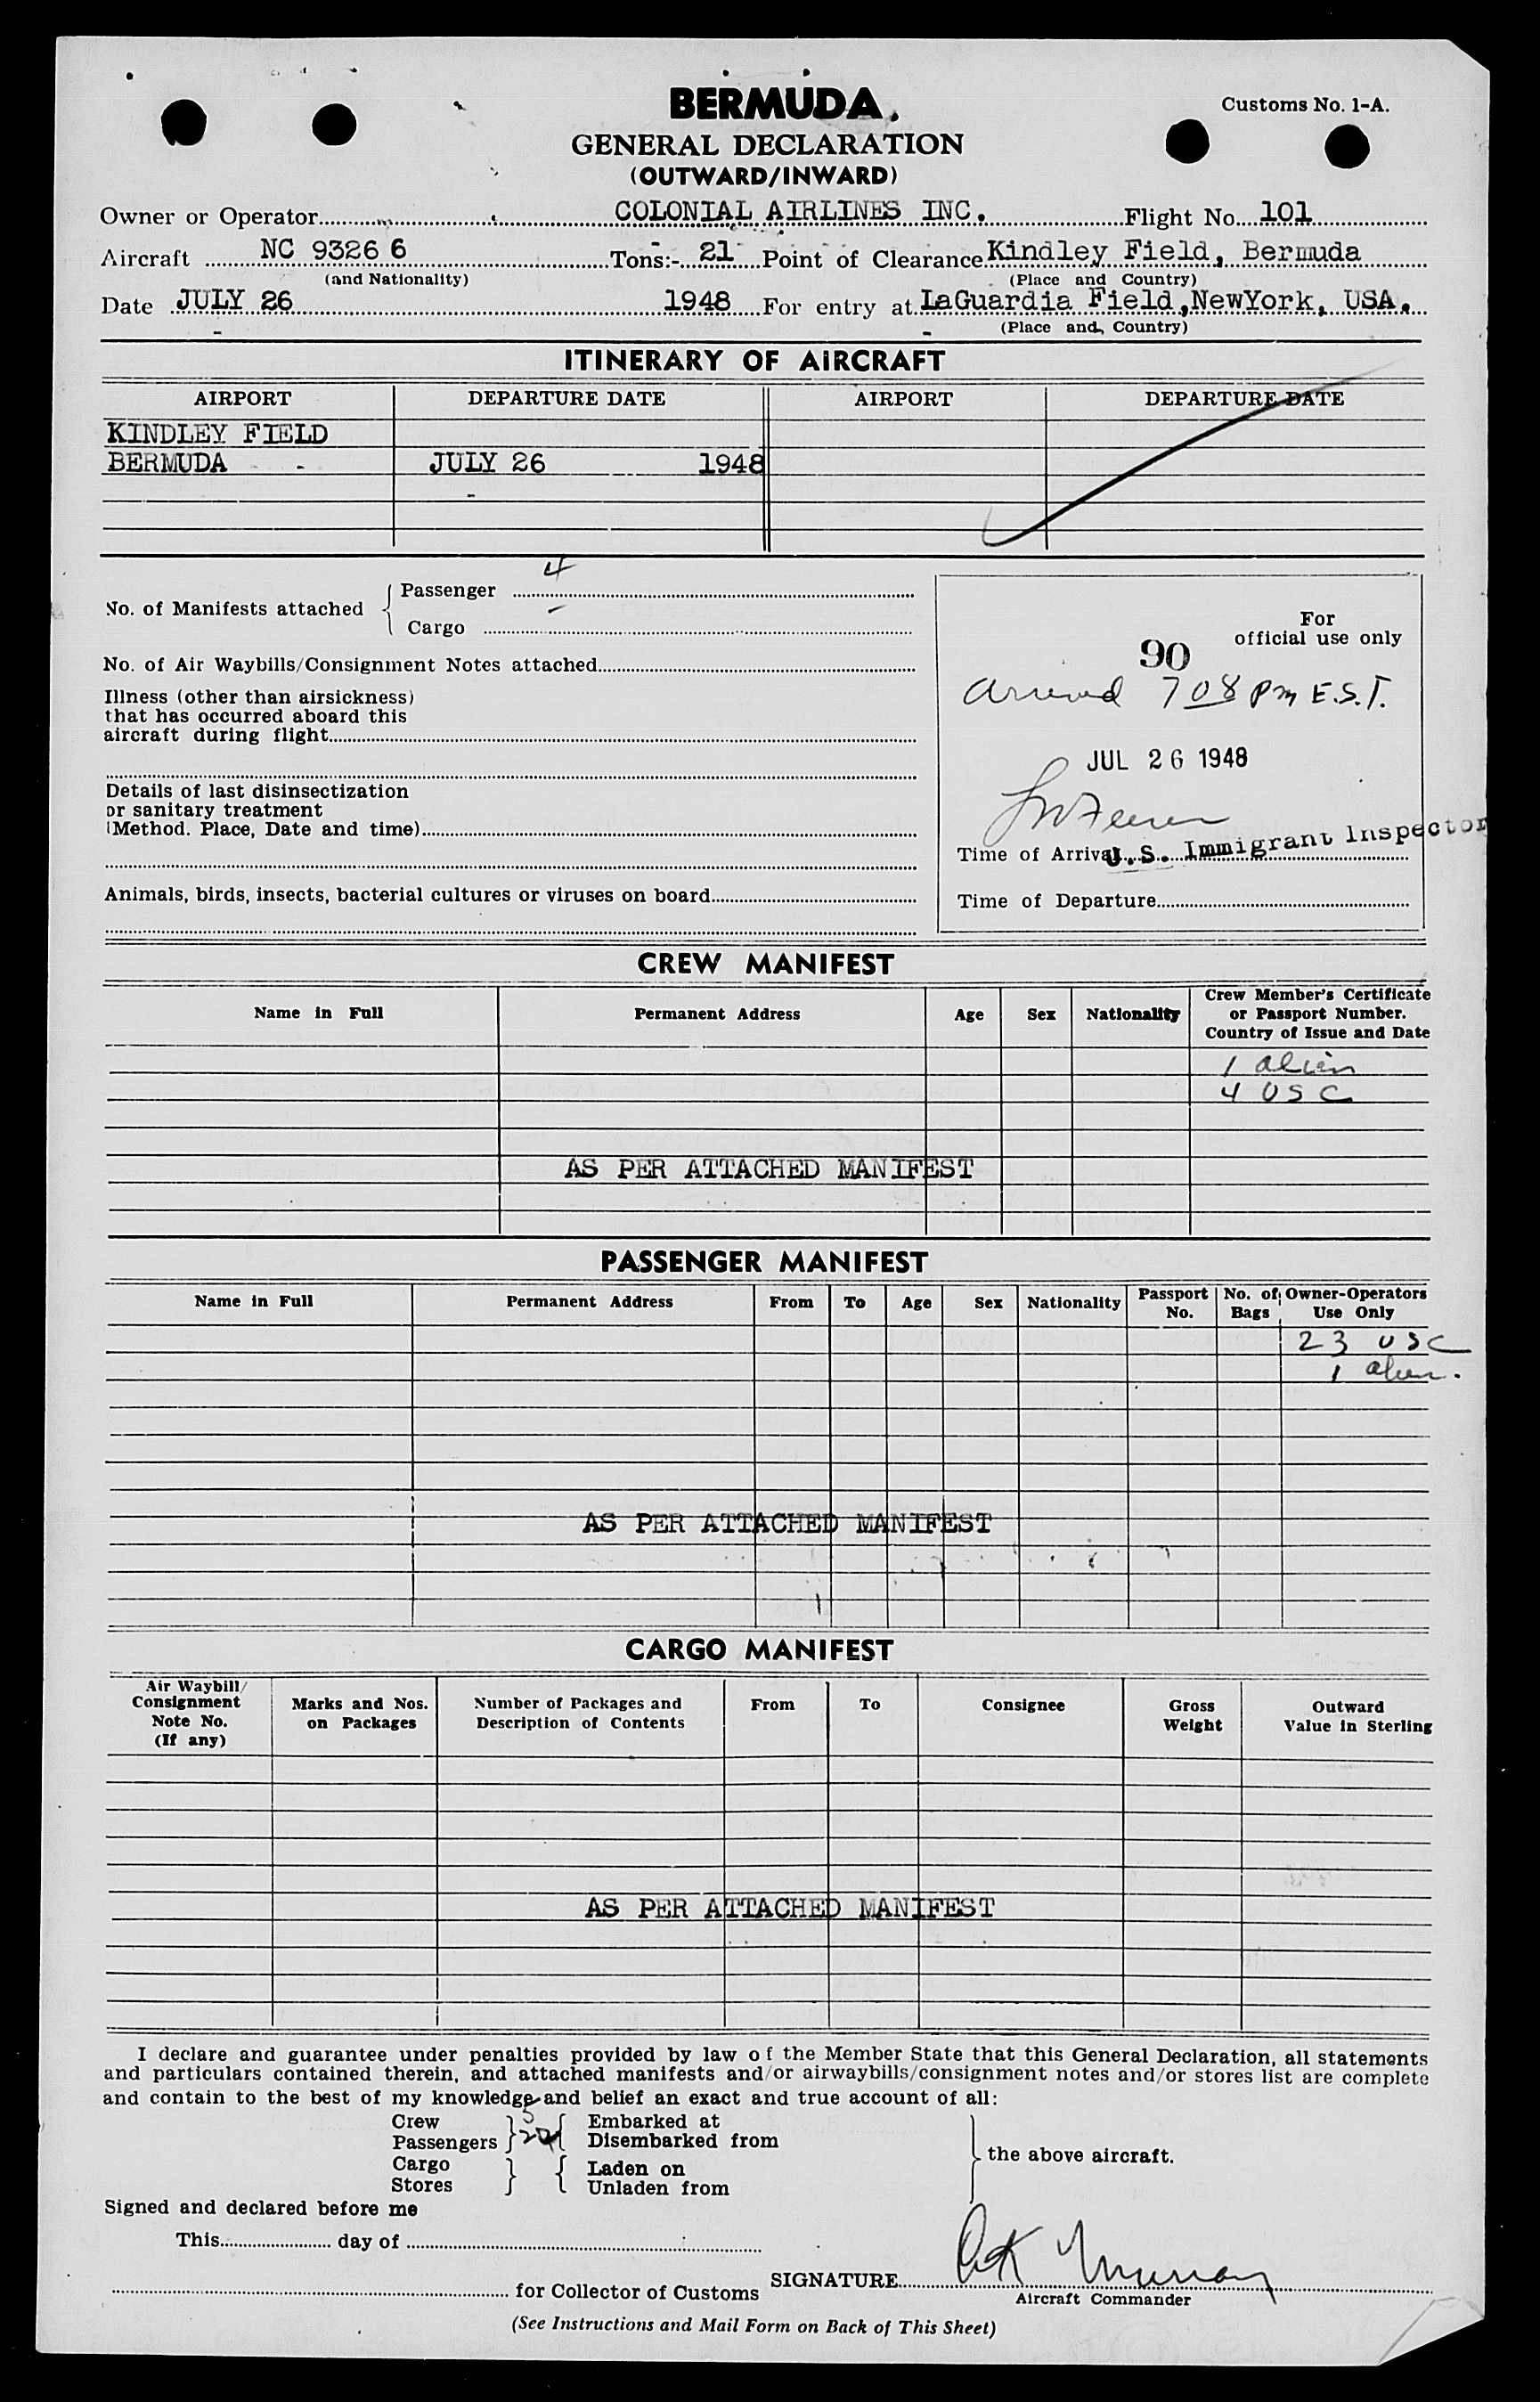 BERMUDA.
Customs No. 1-A.
GENERAL DECLARATION
(OUTWARD/INWARD)
Owner or Operator COLONIAL AIRLINES INC. Flight No. 101
Aircraft NC 93266 Tons:- 21 Point of Clearance Kindley Field, Bermuda
(and Nationality) (Place and Country)
Date JULY 26 1948 For entry at LaGuardia Field,NewYork, USA.
(Place and Country)
ITINERARY OF AIRCRAFT
AIRPORT DEPARTURE DATE AIRPORT DEPARTURE DATE
KINDLEY FIELD
BERMUDA - JULY 26 1948
No. of Manifests attached { Passenger 4
Cargo -
No. of Air Waybills/Consignment Notes attached
Illness (other than airsickness)
that has occurred aboard this
aircraft during flight
Details of last disinsectization
or sanitary treatment
(Method. Place, Date and time)
Animals, birds, insects, bacterial cultures or viruses on board
For
official use only
90
Arrived 7 08 PM E.S.T.
JUL 26 1948
U.S. Immigrant Inspector
Time of Arrival
Time of Departure
CREW MANIFEST
Name in Full Permanent Address Age Sex Nationality Crew Member's Certificate
or Passport Number.
Country of Issue and Date
1 alien
4 USC
AS PER ATTACHED MANIFEST
PASSENGER MANIFEST
Name in Full Permanent Address From To Age Sex Nationality Passport No. No. of Bags Owner-Operators Use Only
23 USC
1 alien.
AS PER ATTACHED MANIFEST
CARGO MANIFEST
Air Waybill/
Consignment
Note No.
(If any)
Marks and Nos.
on Packages
Number of Packages and
Description of Contents
From To Consignee Gross
Weight
Outward
Value in Sterling
AS PER ATTACHED MANIFEST
I declare and guarantee under penalties provided by law of the Member State that this General Declaration, all statements
and particulars contained therein, and attached manifests and/or airwaybills/consignment notes and/or stores list are complete
and contain to the best of my knowledge and belief an exact and true account of all:
Crew } 5 { Embarked at
Passengers } 24 { Disembarked from
Cargo } { Laden on
Stores } { Unladen from
} the above aircraft.
Signed and declared before me
This day of
for Collector of Customs
SIGNATURE Murray
Aircraft Commander
(See Instructions and Mail Form on Back of This Sheet)